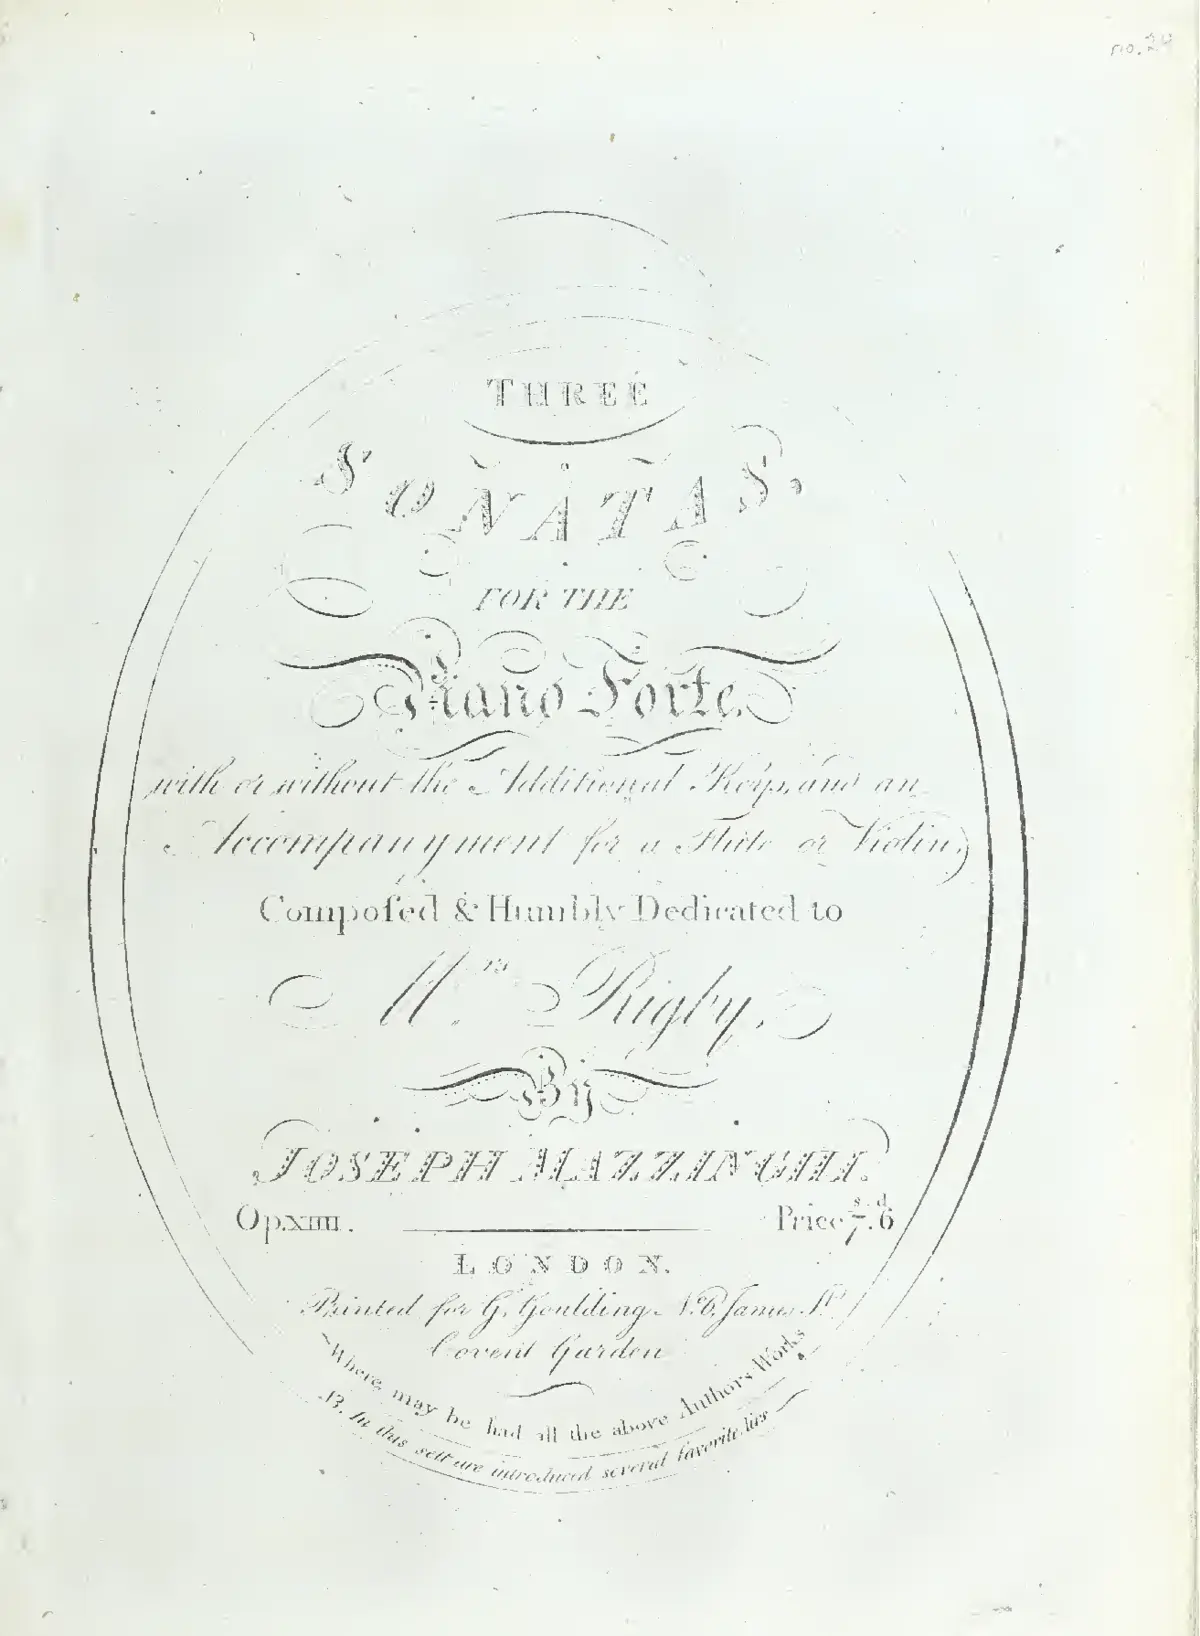 THREE
SONATAS.
FOR THE
Piano Forte,
with or without the Additional Keys, and an
Accompanyment for a Flute or Violin,
Compoſed & Humbly Dedicated to
Mrs. Rigby.
By
JOSEPH MAZZINGHI.
Op. XIIII. Price 7s. 6d
LONDON.
Printed for G. Goulding No. 6. James St.
Covent Garden
Where, may be had all the above Authors Works
.B. In this sett are introduced several favorite Airs